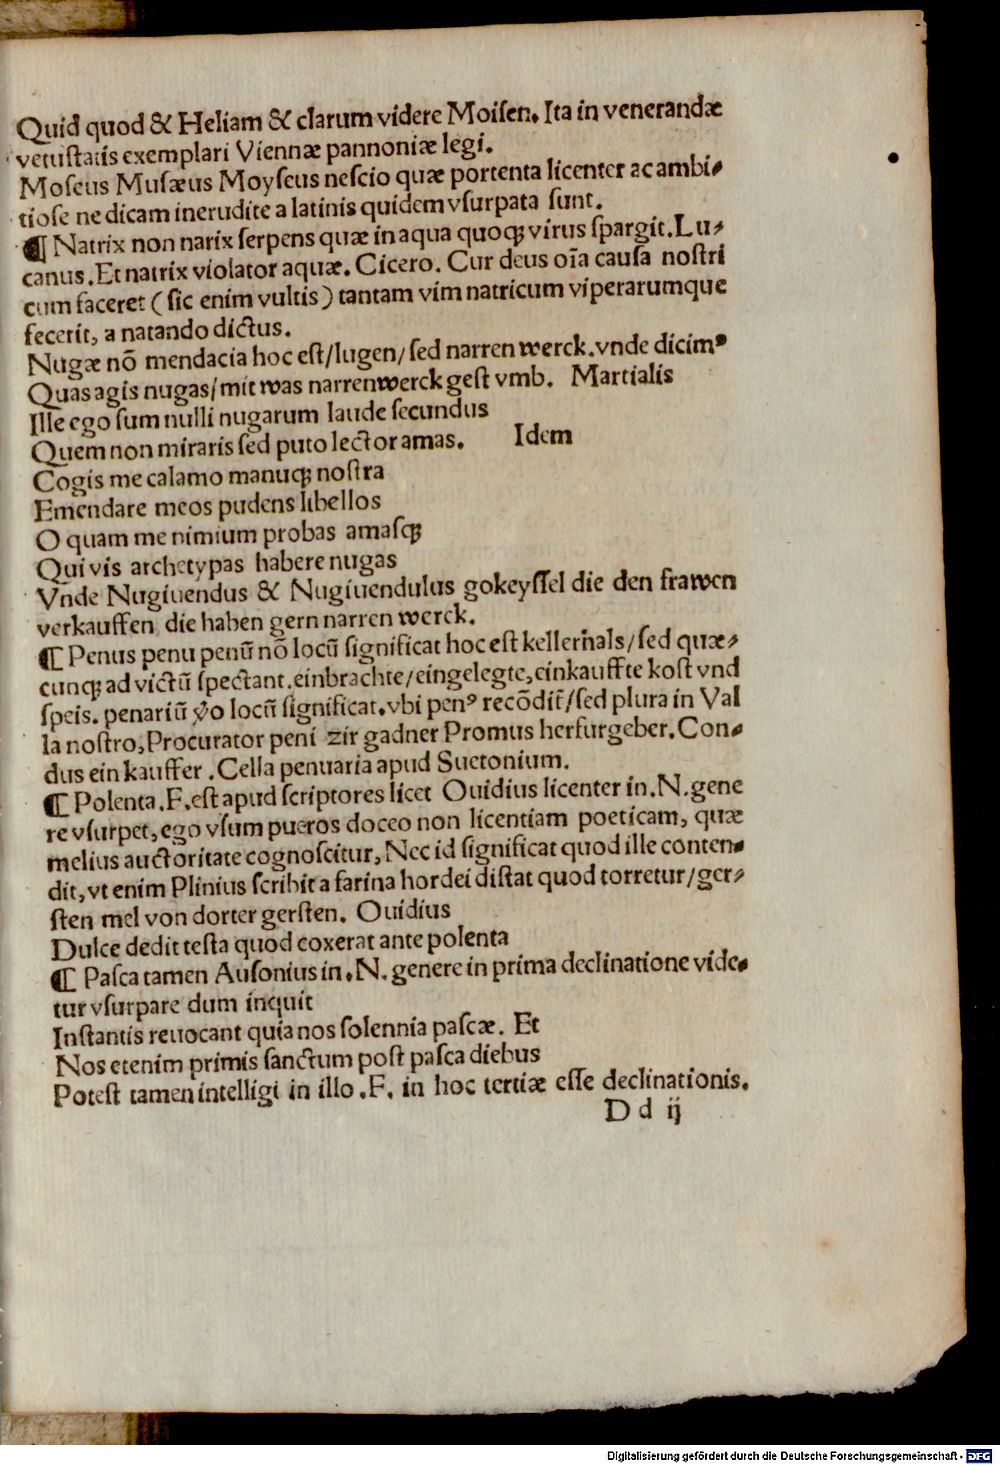 Quid quod & Heliam & clarum videre Moisen. Ita in venerandæ
vetustatis exemplari Viennæ pannoniæ legi.
Moseus Musæus Moyseus nescio quæ portenta licenter ac ambi⸗
tiose ne dicam inerudite a latinis quidem vsurpata sunt.
¶ Natrix non narix serpens quæ in aqua quoqꝫ virus spargit. Lu⸗
canus. Et natrix violator aquæ. Cicero. Cur deus oīa causa nostri
cum faceret (sic enim vultis) tantam vim natricum viperarumque
fecerit, a natando dictus.
Nugæ nō mendacia hoc est/lugen/sed narren werck. vnde dicimꝰ
Quas agis nugas/mit was narrenwerck gest vmb. Martialis
Ille ego sum nulli nugarum laude secundus
Quem non miraris sed puto lector amas. Idem
Cogis me calamo manuqꝫ nostra
Emendare meos pudens libellos
O quam me nimium probas amasqꝫ
Qui vis archetypas habere nugas
Vnde Nugiuendus & Nugiuendulus gokeyssel die den frawen
verkauffen die haben gern narren werck.
¶ Penus penu penū nō locū significat hoc est kellerhals/sed quæ⸗
cunqꝫ ad victū spectant. einbrachte/eingelegte, einkauffte kost vnd
speis. penariū v̊o locū significat. vbi penꝰ recōdit̄/sed plura in Val
la nostro, Procurator peni zir gadner Promus herfurgeber. Con⸗
dus ein kauffer. Cella penuaria apud Suetonium.
¶ Polenta. F. est apud scriptores licet Ouidius licenter in. N. gene
re vsurpet, ego vsum pueros doceo non licentiam poeticam, quæ
melius auctoritate cognoscitur, Nec id significat quod ille conten⸗
dit, vt enim Plinius scribit a farina hordei distat quod torretur/ger⸗
sten mel von dorter gersten. Ouidius
Dulce dedit testa quod coxerat ante polenta
¶ Pasca tamen Ausonius in. N. genere in prima declinatione vide⸗
tur vsurpare dum inquit
Instantis reuocant quia nos solennia pascæ. Et
Nos etenim primis sanctum post pasca diebus
Potest tamen intelligi in illo. F. in hoc tertiæ esse declinationis.
D d ij
Digitalisierung gefördert durch die Deutsche Forschungsgemeinschaft - DFG